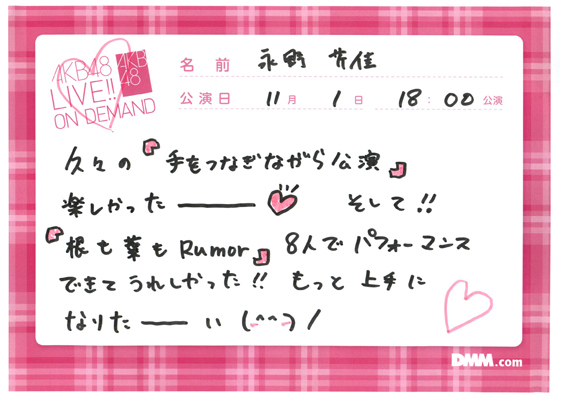 AKB48
LIVE!!
ON DEMAND
AKB
48
名前 永野 芹佳
公演日 11月 1日 18:00公演
久々の『手をつなぎながら公演』
楽しかったーーー♡ そして!!
『根も葉もRumor』8人でパフォーマンス
できてうれしかった!! もっと上手に
なりたーーい(^^)/
DMM.com